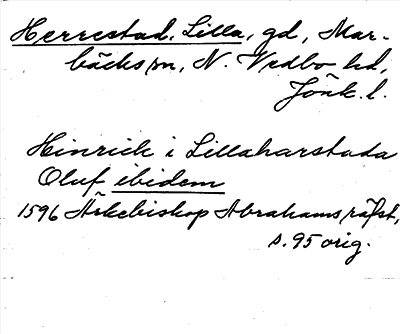 Herrestad, Lilla, gd, Mar-
bäcks sn, N. Vedbo hd,
Jönk. l.
Hinrich i Lillaharstada
Oluf ibidem
1596 Ärkebiskop Abrahams räfst,
s. 95 orig.